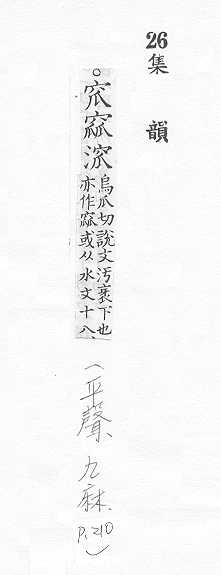 26 集韻
○窊窳溛
烏瓜切說文汚衺下也
亦作窳或从水文十八
（平聲 九麻 P.210）